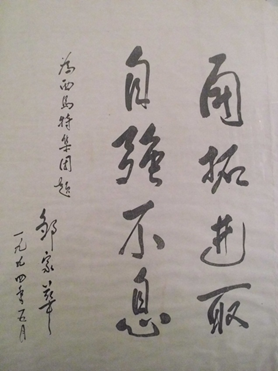 开拓进取
自强不息
为西马特集团题
邹家华
一九九四年五月